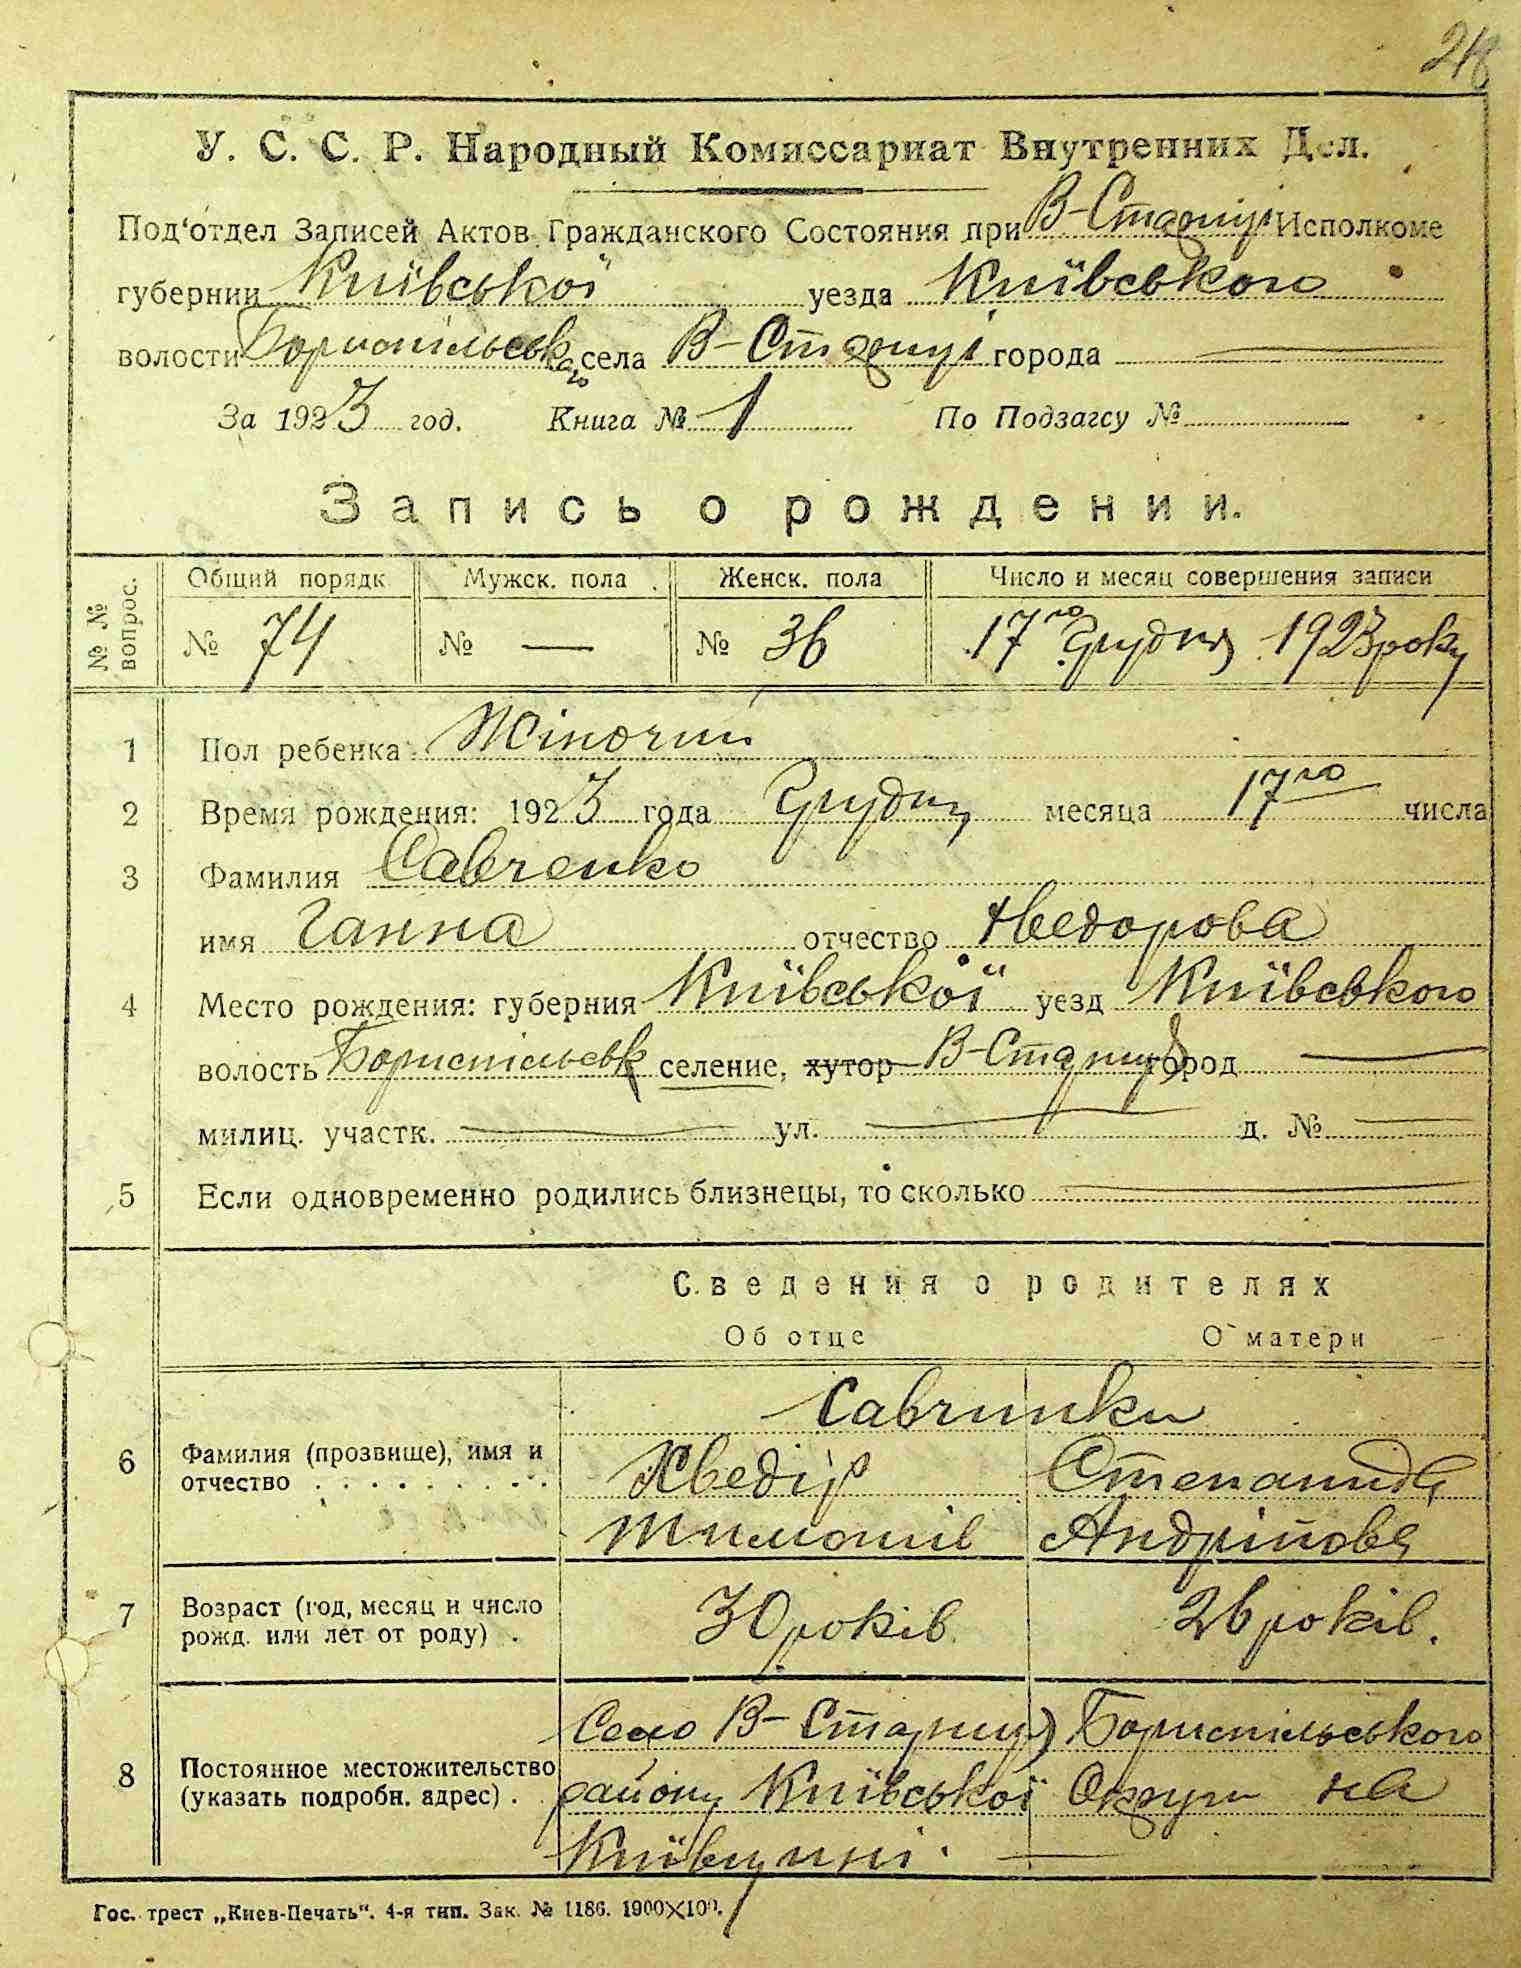 У. С. С. Р. Народный Комиссариат Внутренних Дел.
Под‘отдел Записей Актов Гражданского Состояния при В-Стариці Исполкоме
губернии Київської уезда Київського
волости Бориспільськ села В-Стариці города —
За 1923 год. Книга № 1 По Подзагсу №
Запись о рождении.
№ № вопрос. Общий порядк Мужск. пола Женск. пола Число и месяц совершения записи
№ 74 № — № 36 17го Грудня 1923 року
1 Пол ребенка Жіночий
2 Время рождения: 1923 года Грудня месяца 17го числа
3 Фамилия Савченко
имя Ганна отчество Хведорова
4 Место рождения: губерния Київської уезд Київського
волость Бориспільськ селение, хутор В-Стариця город —
милиц. участк. — ул. — д. № —
5 Если одновременно родились близнецы, то сколько —
Сведения о родителях
Об отце О матери
Савчинки
6 Фамилия (прозвище), имя и Хведір Степанида
отчество Тимошів Андріїова
7 Возраст (год, месяц и число 30 років 26 років.
рожд. или лет от роду) .
Село В-Стариця Бориспільського
8 Постоянное местожительство
(указать подробн. адрес) . району Київської Округи на
Київщині. —
Гос. трест „Киев-Печать“. 4-я тип. Зак. № 1186. 1900×100.